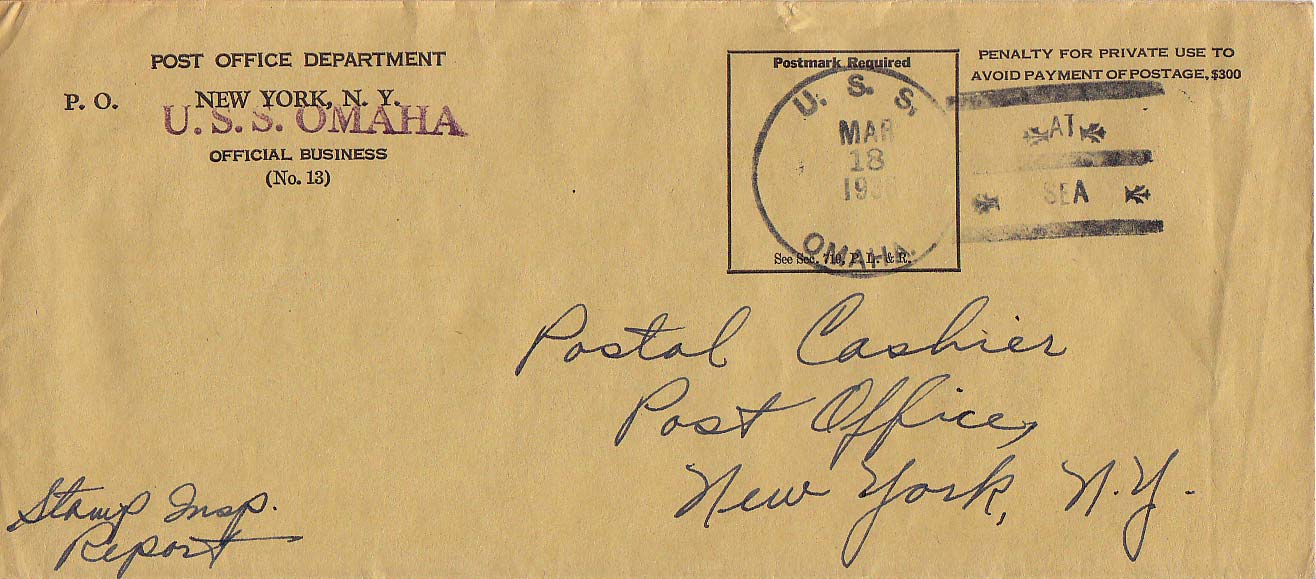 POST OFFICE DEPARTMENT
P. O. NEW YORK, N. Y.
U. S. S. OMAHA
OFFICIAL BUSINESS
(No. 13)
Postmark Required
U. S. S.
MAR
18
OMAHA.
See Sec. 710, P. L. & R.
PENALTY FOR PRIVATE USE TO
AVOID PAYMENT OF POSTAGE, $300
AT
SEA
Postal Cashier
Post Office,
New York, N.Y.
Stamp Insp.
Report